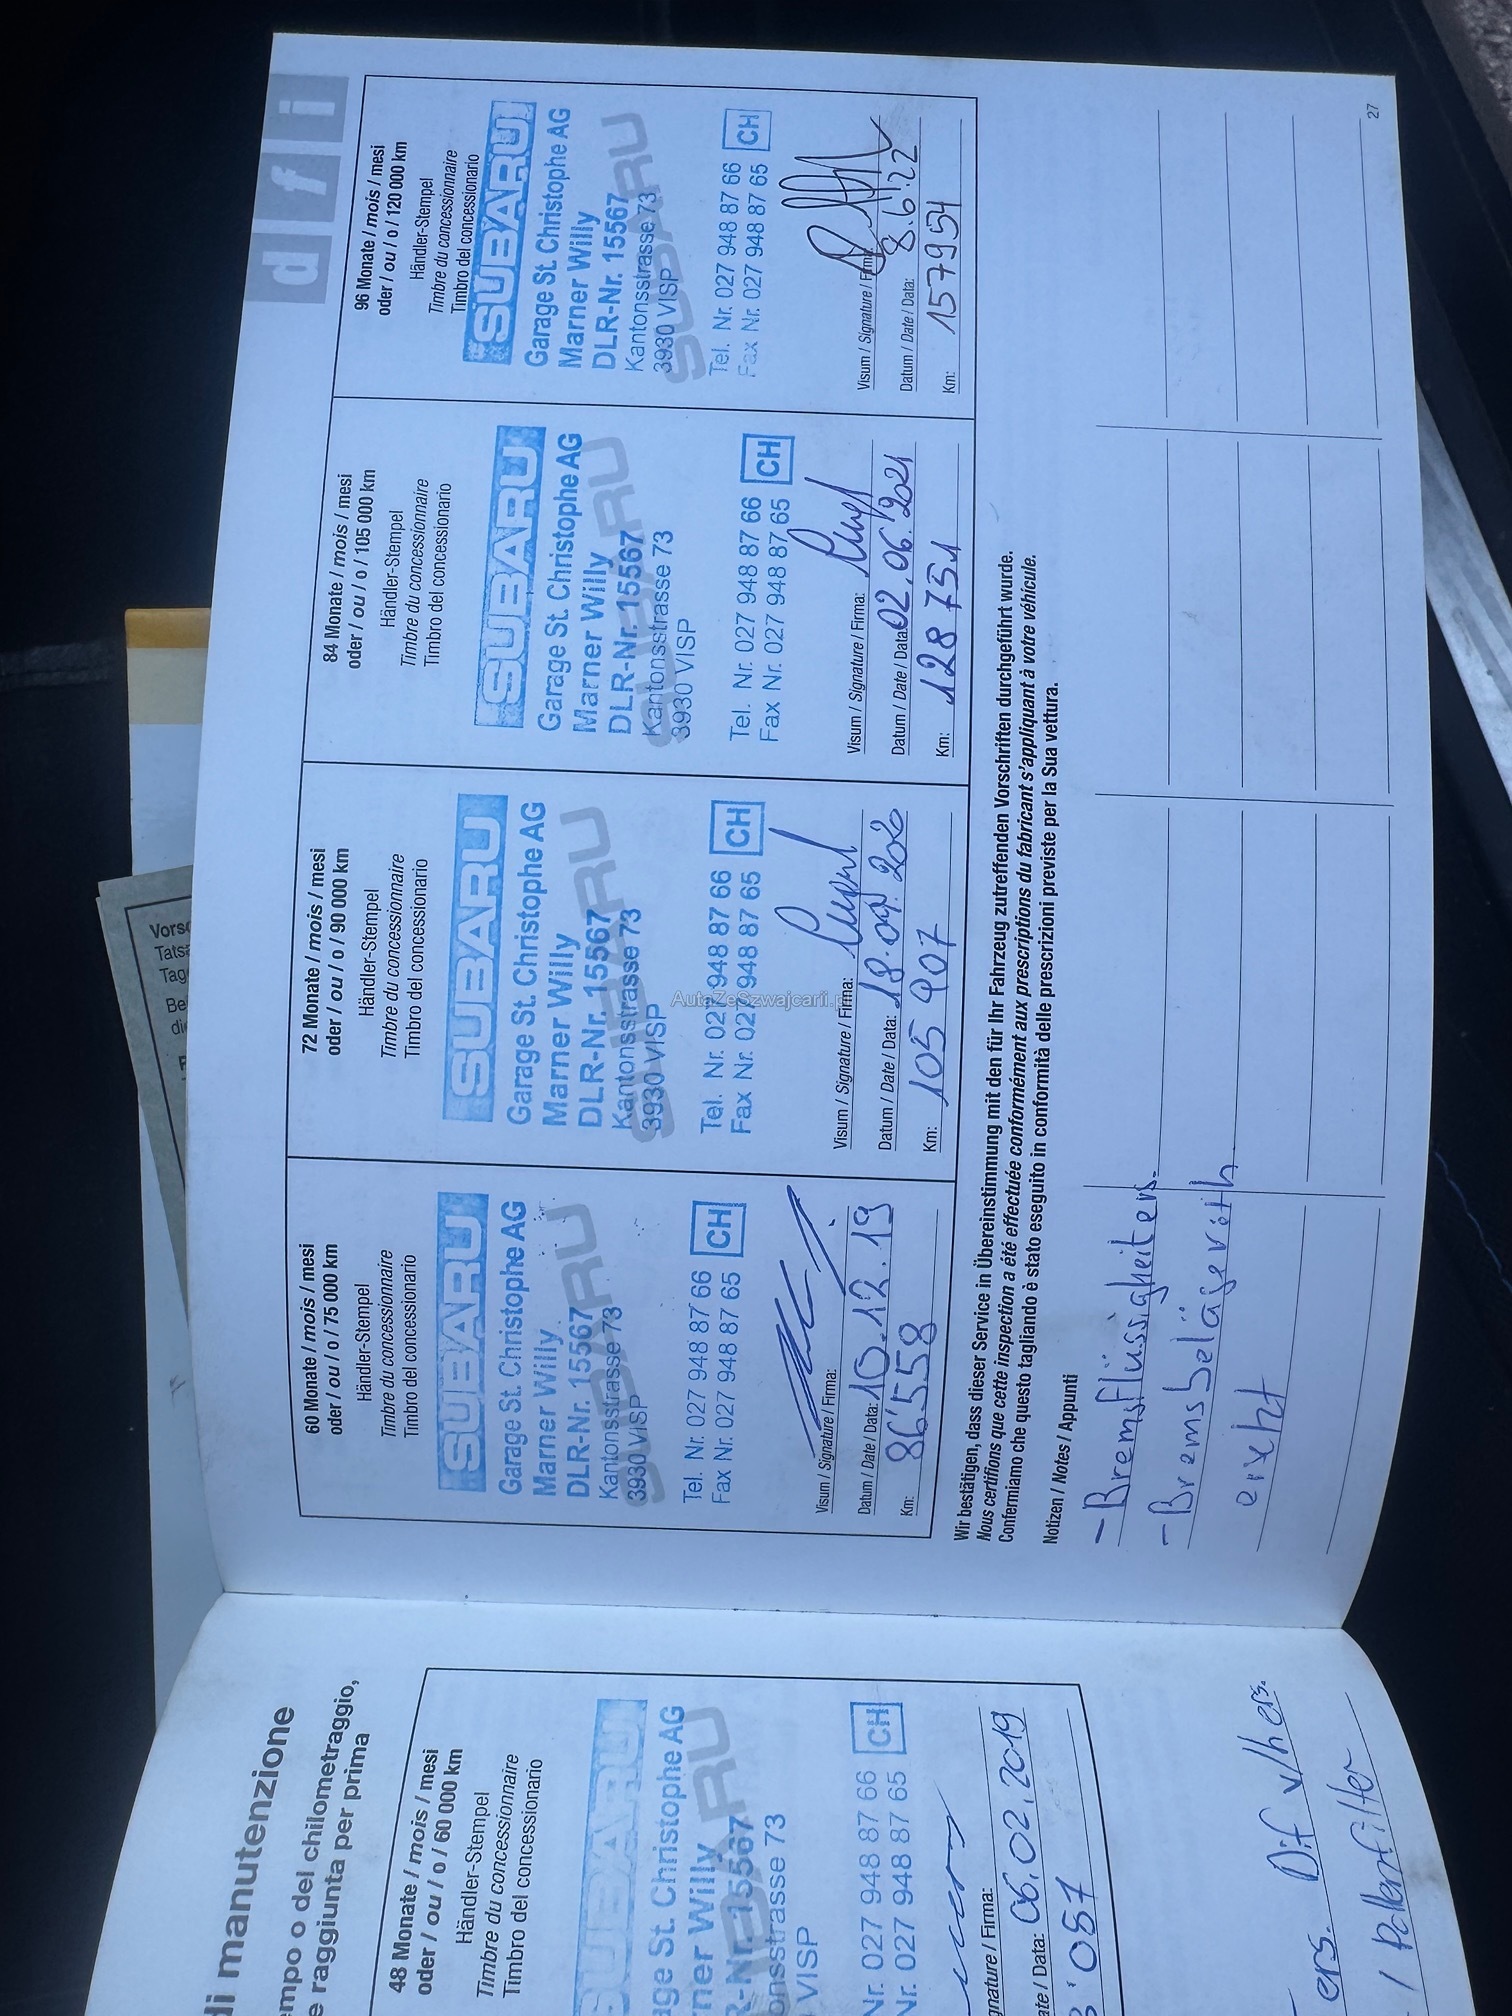 di manutenzione
empo o del chilometraggio,
e raggiunta per prima
48 Monate / mois / mesi
oder / ou / o / 60 000 km
Händler-Stempel
Timbre du concessionnaire
Timbro del concessionario
SUBARU
age St. Christophe AG
rner Willy
R-Nr. 15567
nsstrasse 73
VISP
SUBARU
Nr. 027 948 87 66
Nr. 027 948 87 65
CH
gnature / Firma:
ate / Data: 06.02.2019
'087
ers. Dif v/h ers.
/ Pollenfilter
d f i
60 Monate / mois / mesi
oder / ou / o / 75 000 km
Händler-Stempel
Timbre du concessionnaire
Timbro del concessionario
SUBARU
Garage St. Christophe AG
Marner Willy
DLR-Nr. 15567
Kantonsstrasse 73
3930 VISP
SUBARU
Tel. Nr. 027 948 87 66
Fax Nr. 027 948 87 65
CH
Visum / Signature / Firma:
Datum / Date / Data: 10.12.19
Km: 86'558
72 Monate / mois / mesi
oder / ou / o / 90 000 km
Händler-Stempel
Timbre du concessionnaire
Timbro del concessionario
SUBARU
Garage St. Christophe AG
Marner Willy
DLR-Nr. 15567
Kantonsstrasse 73
3930 VISP
SUBARU
Tel. Nr. 027 948 87 66
Fax Nr. 027 948 87 65
CH
Visum / Signature / Firma:
Datum / Date / Data: 18.09.2020
Km: 105 907
84 Monate / mois / mesi
oder / ou / o / 105 000 km
Händler-Stempel
Timbre du concessionnaire
Timbro del concessionario
SUBARU
Garage St. Christophe AG
Marner Willy
DLR-Nr. 15567
Kantonsstrasse 73
3930 VISP
SUBARU
Tel. Nr. 027 948 87 66
Fax Nr. 027 948 87 65
CH
Visum / Signature / Firma:
Datum / Date / Data: 02.06.2021
Km: 128 751
96 Monate / mois / mesi
oder / ou / o / 120 000 km
Händler-Stempel
Timbre du concessionnaire
Timbro del concessionario
SUBARU
Garage St. Christophe AG
Marner Willy
DLR-Nr. 15567
Kantonsstrasse 73
3930 VISP
SUBARU
Tel. Nr. 027 948 87 66
Fax Nr. 027 948 87 65
CH
Visum / Signature / Firma:
Datum / Date / Data: 8.6.22
Km: 157954
Wir bestätigen, dass dieser Service in Übereinstimmung mit den für Ihr Fahrzeug zutreffenden Vorschriften durchgeführt wurde.
Nous certifions que cette inspection a été effectuée conformément aux prescriptions du fabricant s'appliquant à votre véhicule.
Confermiamo che questo tagliando è stato eseguito in conformità delle prescrizioni previste per la Sua vettura.
Notizen / Notes / Appunti
- Bremsflüssigkeit ers.
- Bremsbeläge v+h
27
Vorsc
Tatsä
Tag
Be
die
AutaZeSzwajcarii.p